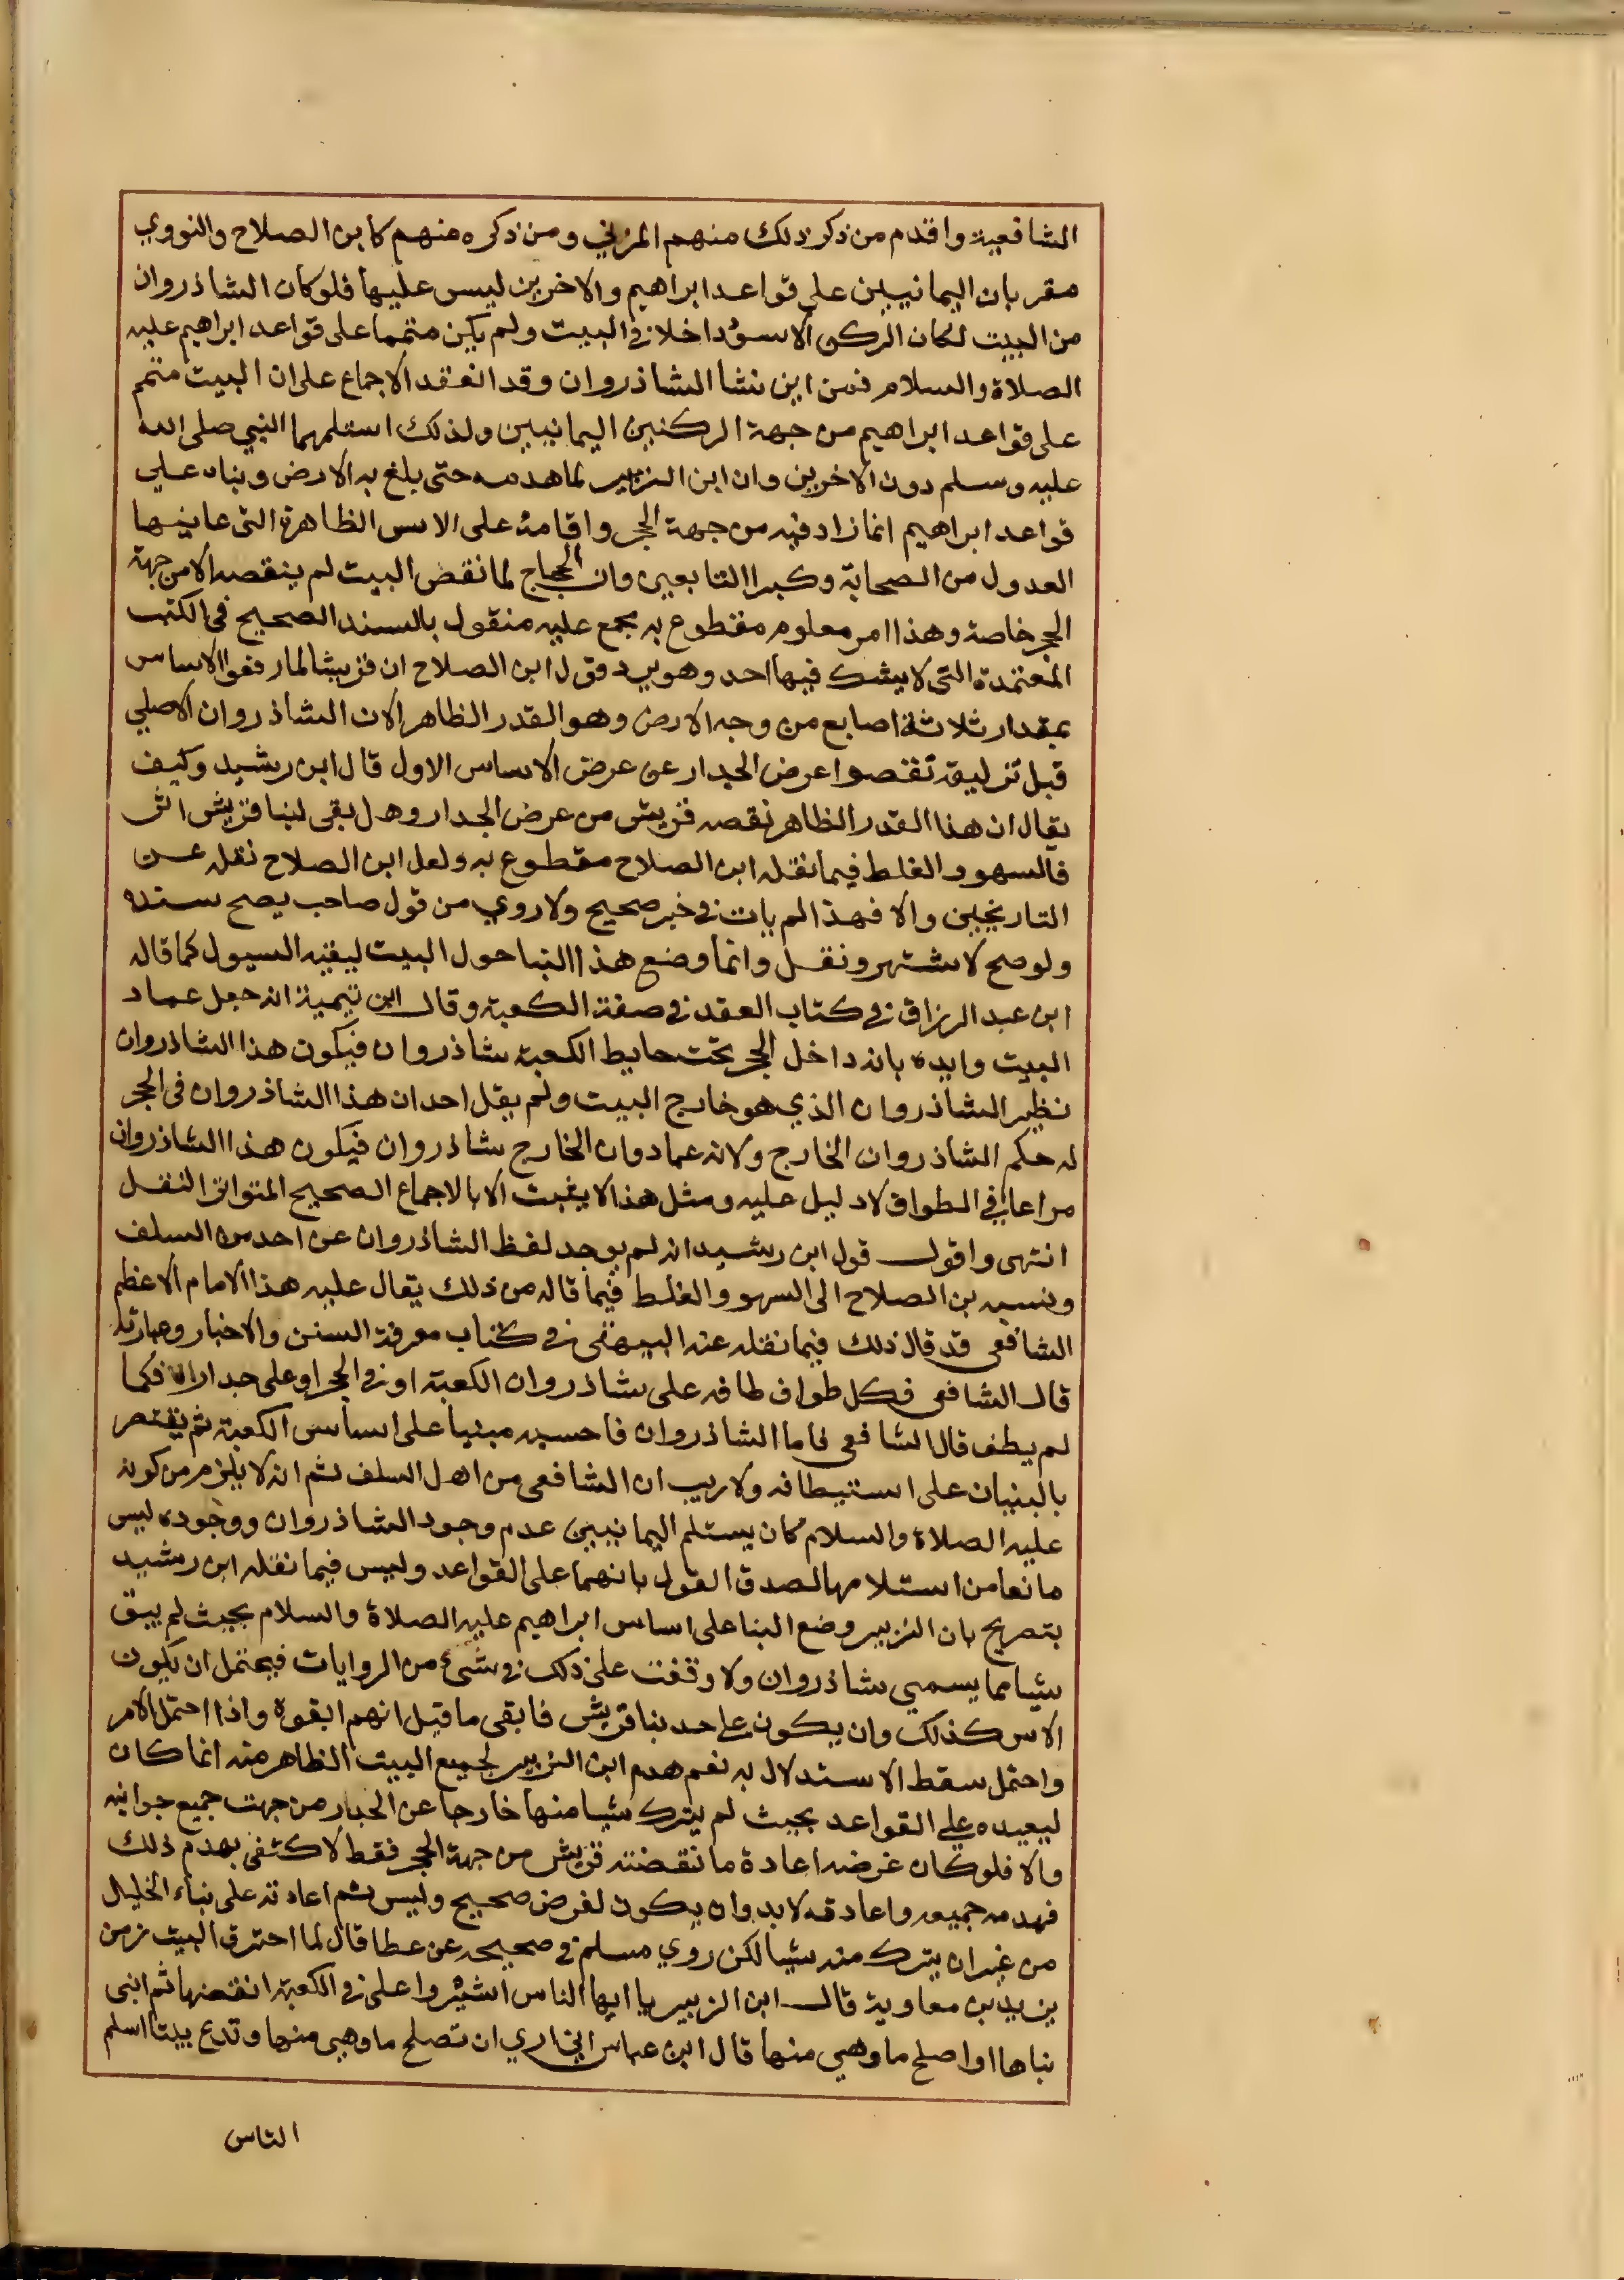 الشافعية واقدم من ذكر ذلك منهم المزني ومن ذكره منهم كابن الصلاح والنووي
مقر بان اليمانيين علي قواعد ابراهيم والاخرين ليس عليها فلوكان الشاذروان
من البيت لكان الركن الاسود داخلا في البيت ولم يكن متمما على قواعد ابراهيم عليه
الصلاة والسلام فمن اين نشا الشاذروان وقد انعقد الاجماع على ان البيت متمم
على قواعد ابراهيم من جهة الركنين اليمانيين ولذلك استلمهما النبي صلى الله
عليه وسلم دون الاخرين وان ابن الزبير لما هدمه حتى بلغ به الارض وبناه علي
قواعد ابراهيم انما زاد فيه من جهة الحجر واقامه على الاسس الظاهرة التى عاينها
العدول من الصحابة وكبرا التابعين وان الحجاج لما نقض البيت لم ينقصه الا من جهة
الحجر خاصة وهذا امر معلوم مقطوع به مجمع عليه منقول بالسند الصحيح في الكتب
المعتمدة التى لا يشك فيها احد وهو يرد قول ابن الصلاح ان قريشا لما رفعوا الاساس
بمقدار ثلاثة اصابع من وجه الارض وهو القدر الظاهر الان الشاذروان الاصلي
قبل تزليقه نقصوا عرض الجدار عن عرض الاساس الاول قال ابن رشيد وكيف
يقال ان هذا القدر الظاهر نقصه قريش من عرض الجدار وهل بقى لبنا قريش اثر
فالسهو والغلط فيما نقله ابن الصلاح مقطوع به ولعل ابن الصلاح نقله عن
التاريخيين والا فهذا لم يات في خبر صحيح ولا روي من قول صاحب يصح سنده
ولو صح لاشتهر ونقل وانما وضع هذا البنا حول البيت ليقيه السيول كما قاله
ابن عبد الرزاق في كتاب العقد في صفة الكعبة وقال ابن تيمية انه جعل عماد
البيت وايده بان داخل الحجر تحت حايط الكعبة شاذروان فيكون هذا الشاذروان
نظير الشاذروان الذي هو خارج البيت ولم يقل احد ان هذا الشاذروان في الحجر
له حكم الشاذروان الخارج ولانه عماد وان الخارج شاذروان فيكون هذا الشاذروان
مراعا في الطواف لا دليل عليه ومثل هذا لا يثبت الا بالاجماع الصحيح المتواتر النقل
انتهى واقول قول ابن رشيد انه لم يوجد لفظ الشاذروان عن احد من السلف
ونسبه بن الصلاح الى السهو والغلط فيما قاله من ذلك يقال عليه هذا الامام الاعظم
الشافعي قد قال ذلك فيما نقله عنه البيهقي في كتاب معرفة السنن والاخبار وعبارته
قال الشافعي فكل طواف طافه على شاذروان الكعبة او في الحجر او على جداره فكما
لم يطف قال الشافعي فاما الشاذروان فاحسبه مبنيا على اساس الكعبة ثم يقتصر
بالبنيان على استيطافه ولا ريب ان الشافعي من اهل السلف ثم انه لا يلزم من كونه
عليه الصلاة والسلام كان يستلم اليمانيين عدم وجود الشاذروان ووجوده ليس
مانعا من استلامهما لصدق القول بانهما على القواعد وليس فيما نقله ابن رشيد
بتصريح بان الزبير وضع البنا على اساس ابراهيم عليه الصلاة والسلام بحيث لم يبق
شيا مما يسمي شاذروان ولا وقفت على ذلك في شئ من الروايات فيحتمل ان يكون
الاس كذلك وان يكون علي حد بنا قريش فابقى ما قيل انهم ابقوه واذا احتمل الامر
واحتمل سقط الاستدلال به نعم هدم ابن الزبير لجميع البيت الظاهر منه انما كان
ليعيده علي القواعد بحيث لم يترك شيا منها خارجا عن الجدار من جهت جميع جوانبه
والا فلو كان غرضه اعادة ما نقضته قريش من جهة الحجر فقط لاكتفى بهدم ذلك
فهدمه جميعه واعادته لا بد وان يكون لغرض صحيح وليس ثم اعادته على بناء الخليل
من غير ان يترك منه شيا لكن روي مسلم في صحيحه عن عطا قال لما احترق البيت زمن
يزيد بن معاوية قال ابن الزبير يا ايها الناس اشيروا على في الكعبة انقضها ثم ابنى
بناها او اصلح ما وهي منها قال ابن عباس اني اري ان تصلح ما وهي منها وتدع بيتا اسلم
الناس